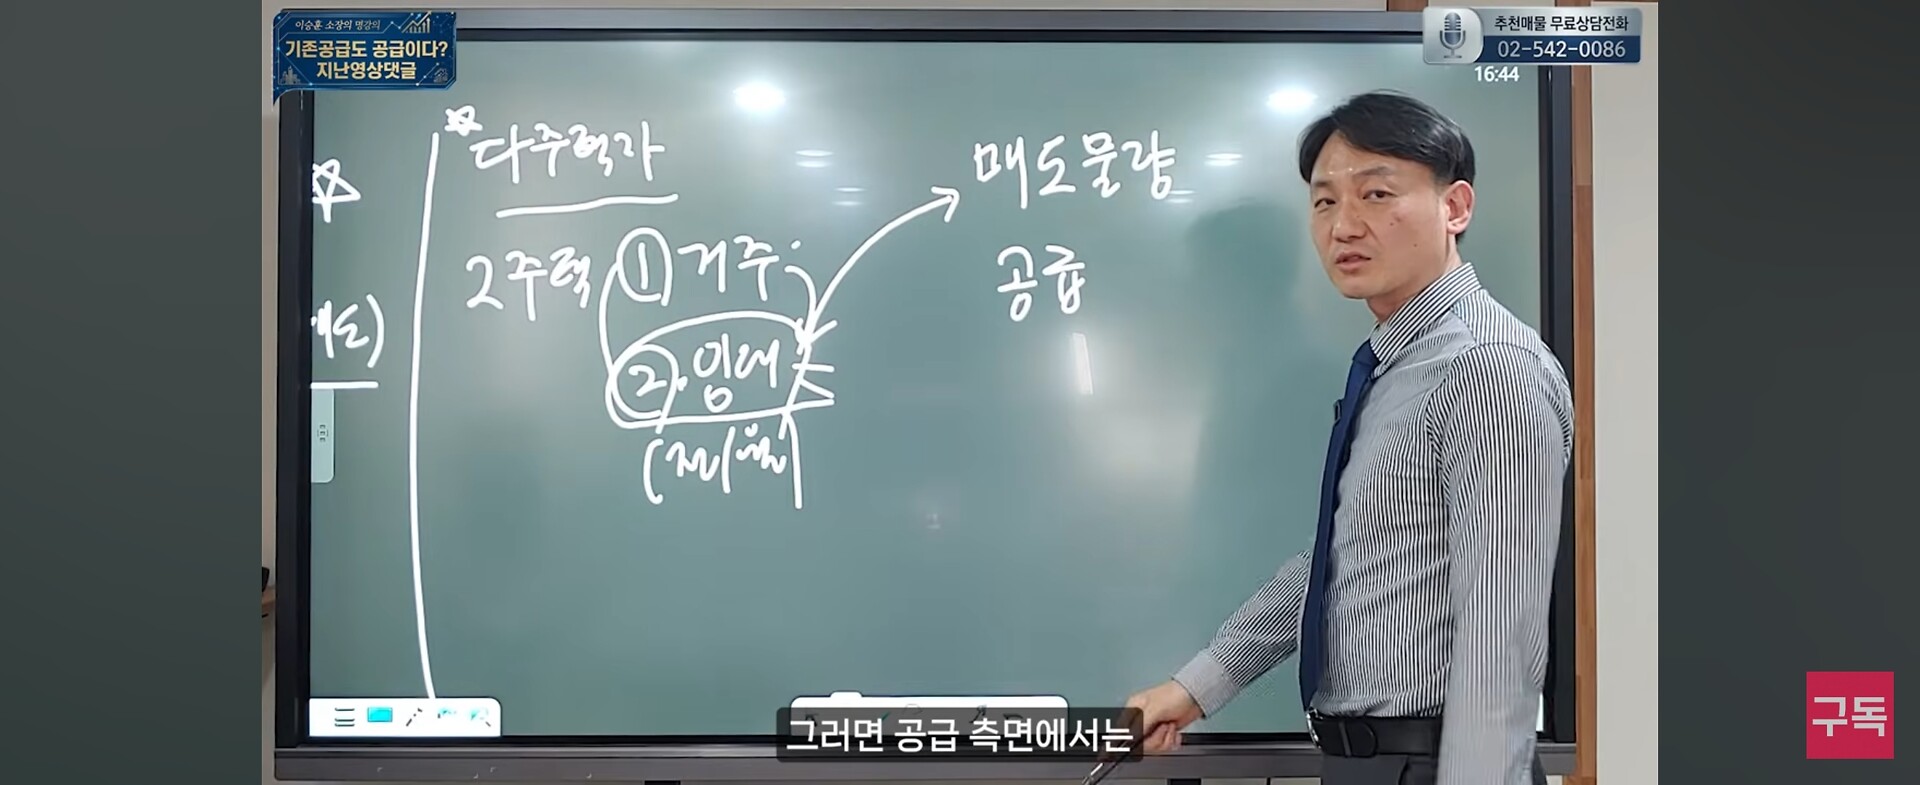 이승훈 소장의 명강의
기존공급도 공급이다?
지난영상댓글
추천매물 무료상담전화
02-542-0086
16:44
다주택자
매도물량
2주택 ① 거주
공급
② 임대
(전/월)
그러면 공급 측면에서는
구독